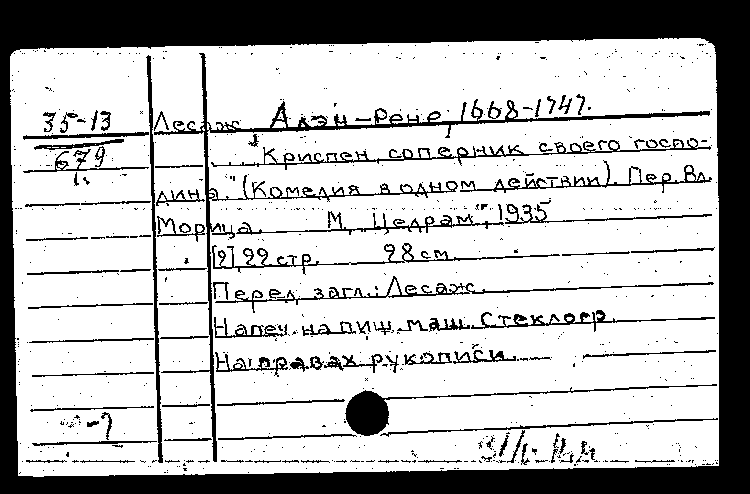 35-13 Лесаж, Алэн-Рене, 1668-1747.
679
"Криспен, соперник своего госпо-
дина." (Комедия в одном действии). Пер. Вл.
Морица. М, "Цедрам", 1935
[2], 22 стр. 28 см.
Перед загл.: Лесаж.
Напеч. на пиш. маш. Стеклогр.
На правах рукописи.